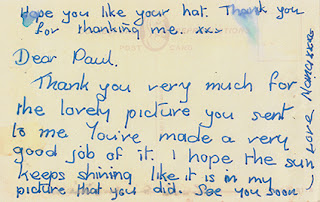 Hope you like your hat. Thank you
for thanking me. xxx
Dear Paul.
Thank you very much for
the lovely picture you sent
to me You've made a very
good job of it. I hope the sun
keeps shining like it is in my
picture that you did. See you soon
Love Nana xxxx